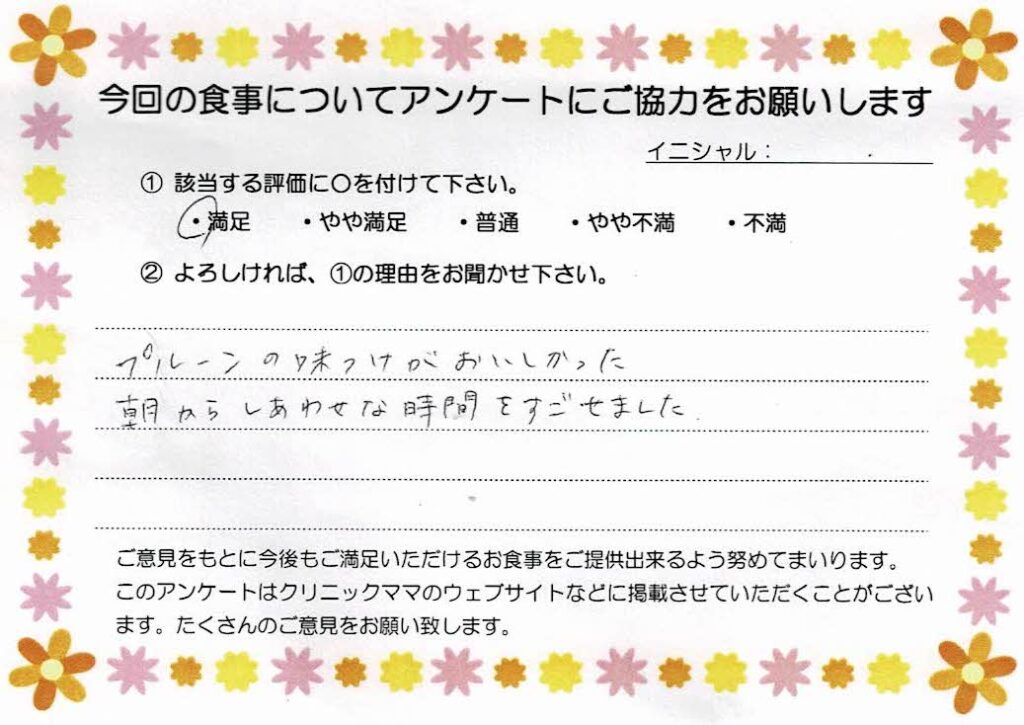 今回の食事についてアンケートにご協力をお願いします
イニシャル：
① 該当する評価に〇を付けて下さい。
・満足　・やや満足　・普通　・やや不満　・不満
② よろしければ、①の理由をお聞かせ下さい。
プルーンの味つけがおいしかった
朝からしあわせな時間をすごせました.
ご意見をもとに今後もご満足いただけるお食事をご提供出来るよう努めてまいります。
このアンケートはクリニックママのウェブサイトなどに掲載させていただくことがござい
ます。たくさんのご意見をお願い致します。